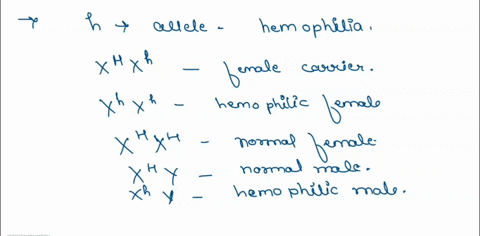 → h → allele - hemophilia.
X^H X^h — female carrier.
X^h X^h - hemophilic female
X^H X^H - normal female
X^H Y - normal male.
X^h Y - hemophilic male.